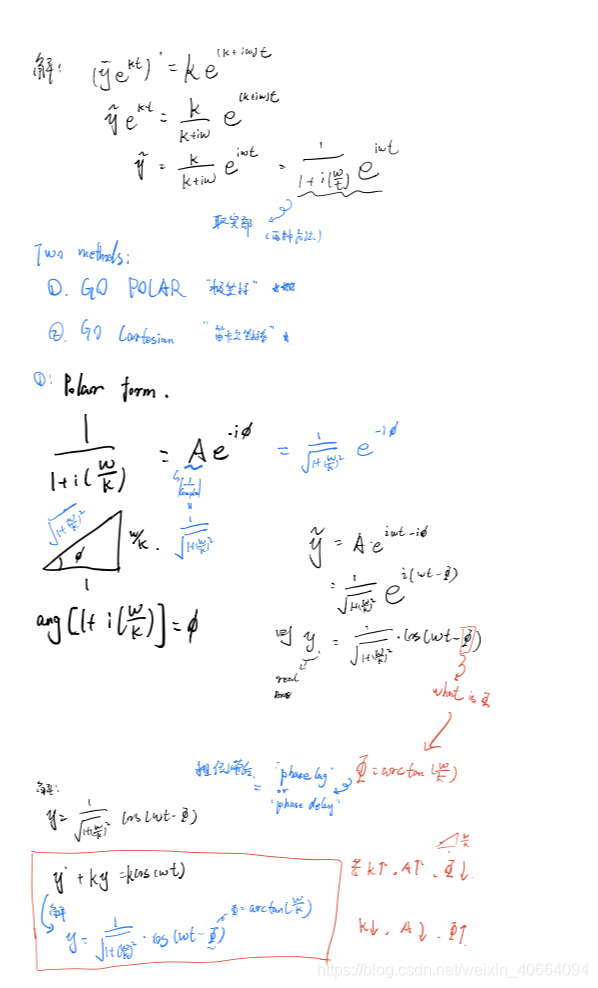 解: (ỹe^{kt})' = k e^{(k+iω)t}
ỹ e^{kt} = \frac{k}{k+iω} e^{(k+iω)t}
ỹ = \frac{k}{k+iω} e^{iωt} = \frac{1}{1+i(\frac{ω}{k})} e^{iωt}
取实部
(两种方法)
Two methods:
①. GO POLAR "极坐标"
②. GO Cartesian "笛卡尔坐标"
①: Polar form.
\frac{1}{1+i(\frac{ω}{k})} = A e^{-iϕ} = \frac{1}{\sqrt{1+(\frac{ω}{k})^2}} e^{-iϕ}
= \frac{1}{\sqrt{1+(\frac{ω}{k})^2}}
\sqrt{1+(\frac{ω}{k})^2}
ϕ
ω/k.
1
ang[1+i(\frac{ω}{k})] = ϕ
ỹ = A·e^{iωt-iϕ}
= \frac{1}{\sqrt{1+(\frac{ω}{k})^2}} e^{i(ωt-Φ)}
则 y = \frac{1}{\sqrt{1+(\frac{ω}{k})^2}}·cos(ωt-Φ)
real
what is Φ
Φ = arctan(\frac{ω}{k})
相位滞后 = "phase lag"
or
"phase delay"
解:
y = \frac{1}{\sqrt{1+(\frac{ω}{k})^2}} cos(ωt-Φ)
y' + ky = k cos(ωt)
解
y = \frac{1}{\sqrt{1+(\frac{ω}{k})^2}}·cos(ωt-Φ) Φ = arctan(\frac{ω}{k})
若 k↑, A↑, Φ↓.
k↓, A↓, Φ↑
https://blog.csdn.net/weixin_40664094